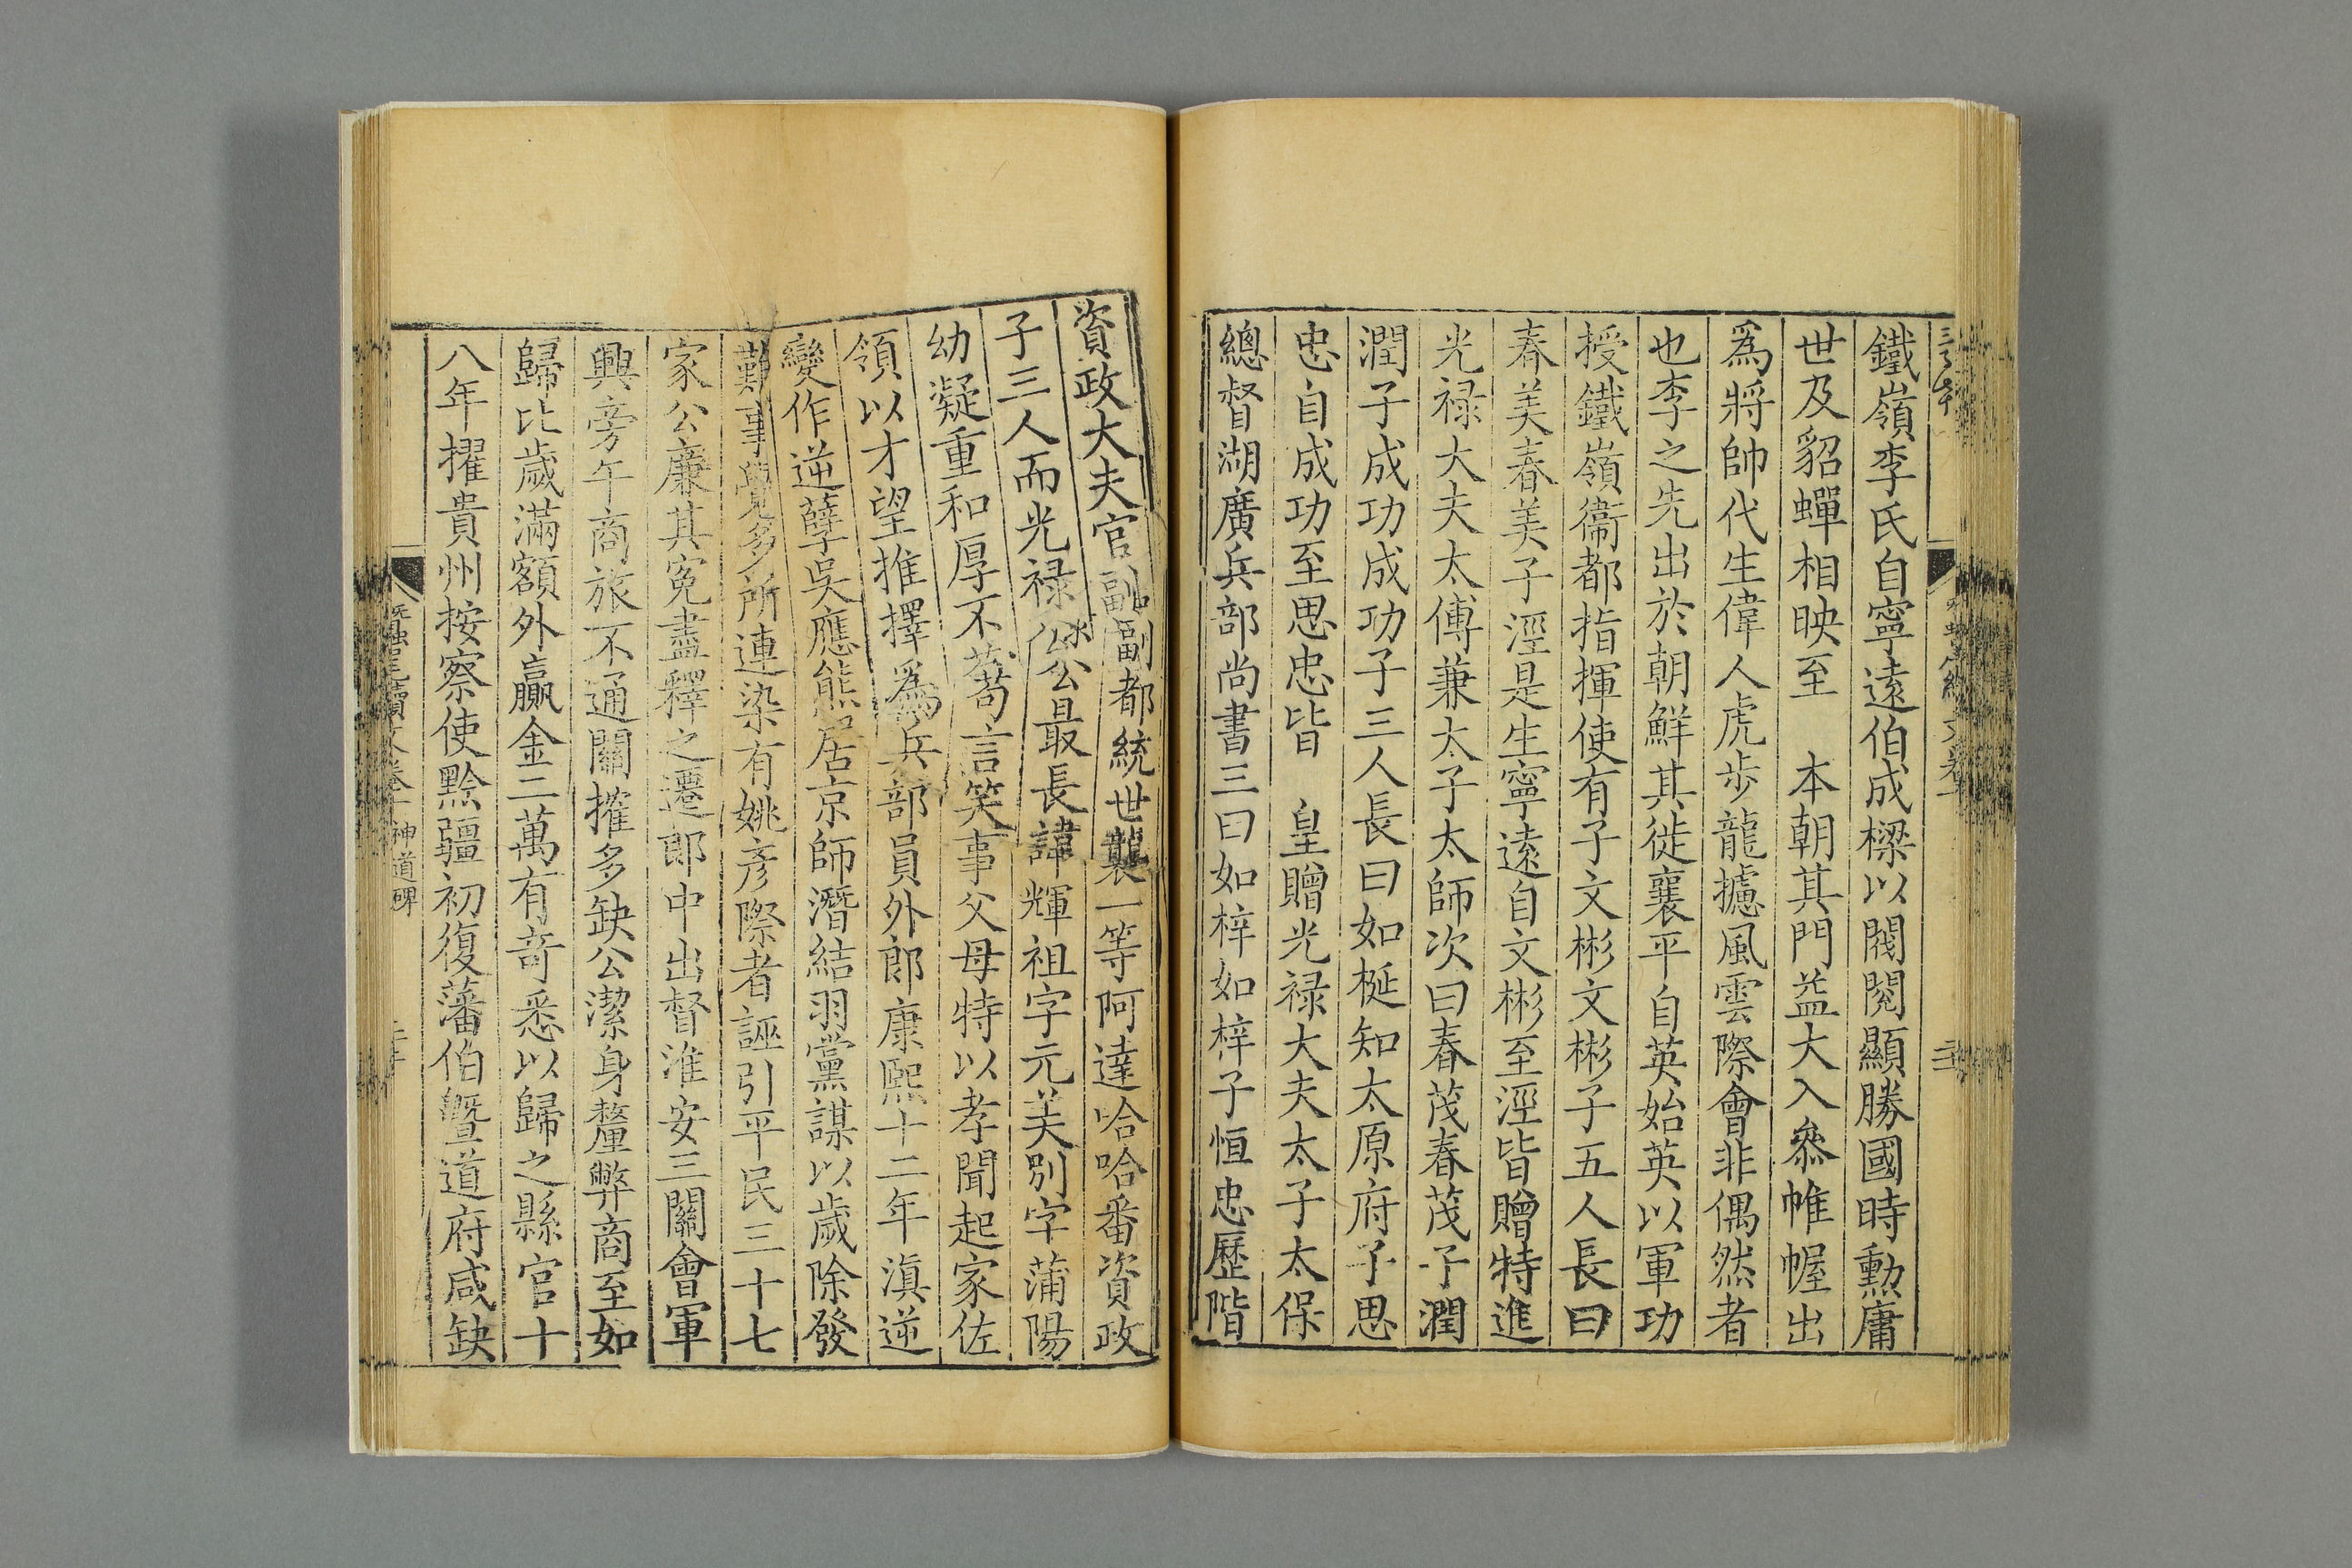 鐵嶺李氏自寧遠伯成樑以閥閱顯勝國時勲庸
世及貂蟬相映至　本朝其門益大入叅帷幄出
爲將帥代生偉人虎步龍攄風雲際會非偶然者
也李之先出於朝鮮其徙襄平自英始英以軍功
授鐵嶺衞都指揮使有子文彬文彬子五人長曰
春美春美子涇是生寧遠自文彬至涇皆贈特進
光禄大夫太傅兼太子太師次曰春茂春茂子潤
潤子成功成功子三人長曰如梴知太原府子思
忠自成功至思忠皆　皇贈光禄大夫太子太保
總督湖廣兵部尚書三曰如梓如梓子恒忠歷階
資政大夫官副副都統世襲一等阿達哈哈番資政
子三人而光禄公最長諱輝祖字元美別字蒲陽
幼凝重和厚不苟言笑事父母特以孝聞起家佐
領以才望推擇爲兵部員外郎康熙十二年滇逆
變作逆孽吳應熊居京師潛結羽黨謀以歲除發
難事覺多所連染有姚彥際者誣引平民三十七
家公廉其寃盡釋之遷郎中出督淮安三關會軍
興旁午商旅不通關搉多缺公潔身釐弊商至如
歸比歲滿額外羸金二萬有竒悉以歸之縣官十
八年擢貴州按察使黔疆初復藩伯曁道府咸缺
神道碑